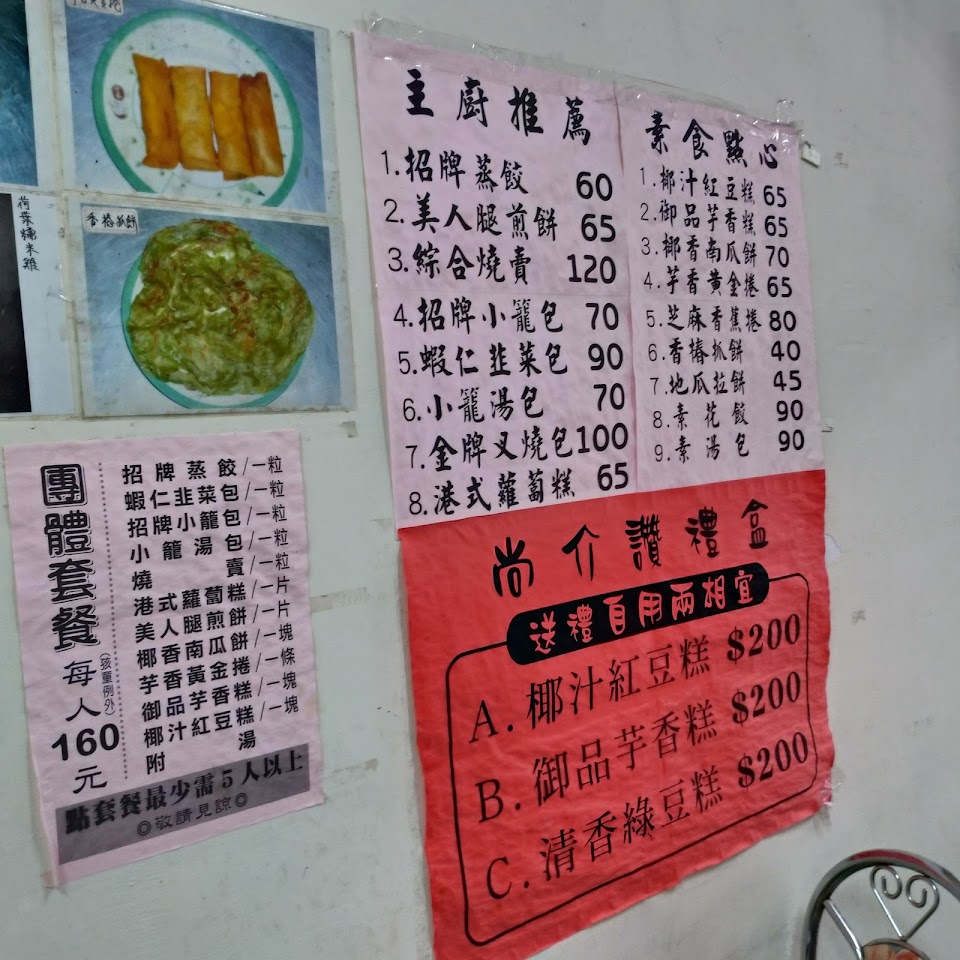 香椿抓餅
荷葉糯米雞
主廚推薦
1.招牌蒸餃 60
2.美人腿煎餅 65
3.綜合燒賣 120
4.招牌小籠包 70
5.蝦仁韭菜包 90
6.小籠湯包 70
7.金牌叉燒包 100
8.港式蘿蔔糕 65
素食點心
1.椰汁紅豆糕 65
2.御品芋香糕 65
3.椰香南瓜餅 70
4.芋香黃金捲 65
5.芝麻香蕉捲 80
6.香椿抓餅 40
7.地瓜拉餅 45
8.素花餃 90
9.素湯包 90
團體套餐
每人160元
(孩童例外)
招牌蒸餃/一粒
蝦仁韭菜包/一粒
招牌小籠包/一粒
小籠湯包/一粒
燒賣/一粒
港式蘿蔔糕/一片
美人腿煎餅/一片
椰香南瓜餅/一塊
芋香黃金捲/一條
御品芋香糕/一塊
椰汁紅豆糕/一塊
附湯
點套餐最少需5人以上
◎敬請見諒◎
尚介讚禮盒
送禮自用兩相宜
A.椰汁紅豆糕 $200
B.御品芋香糕 $200
C.清香綠豆糕 $200